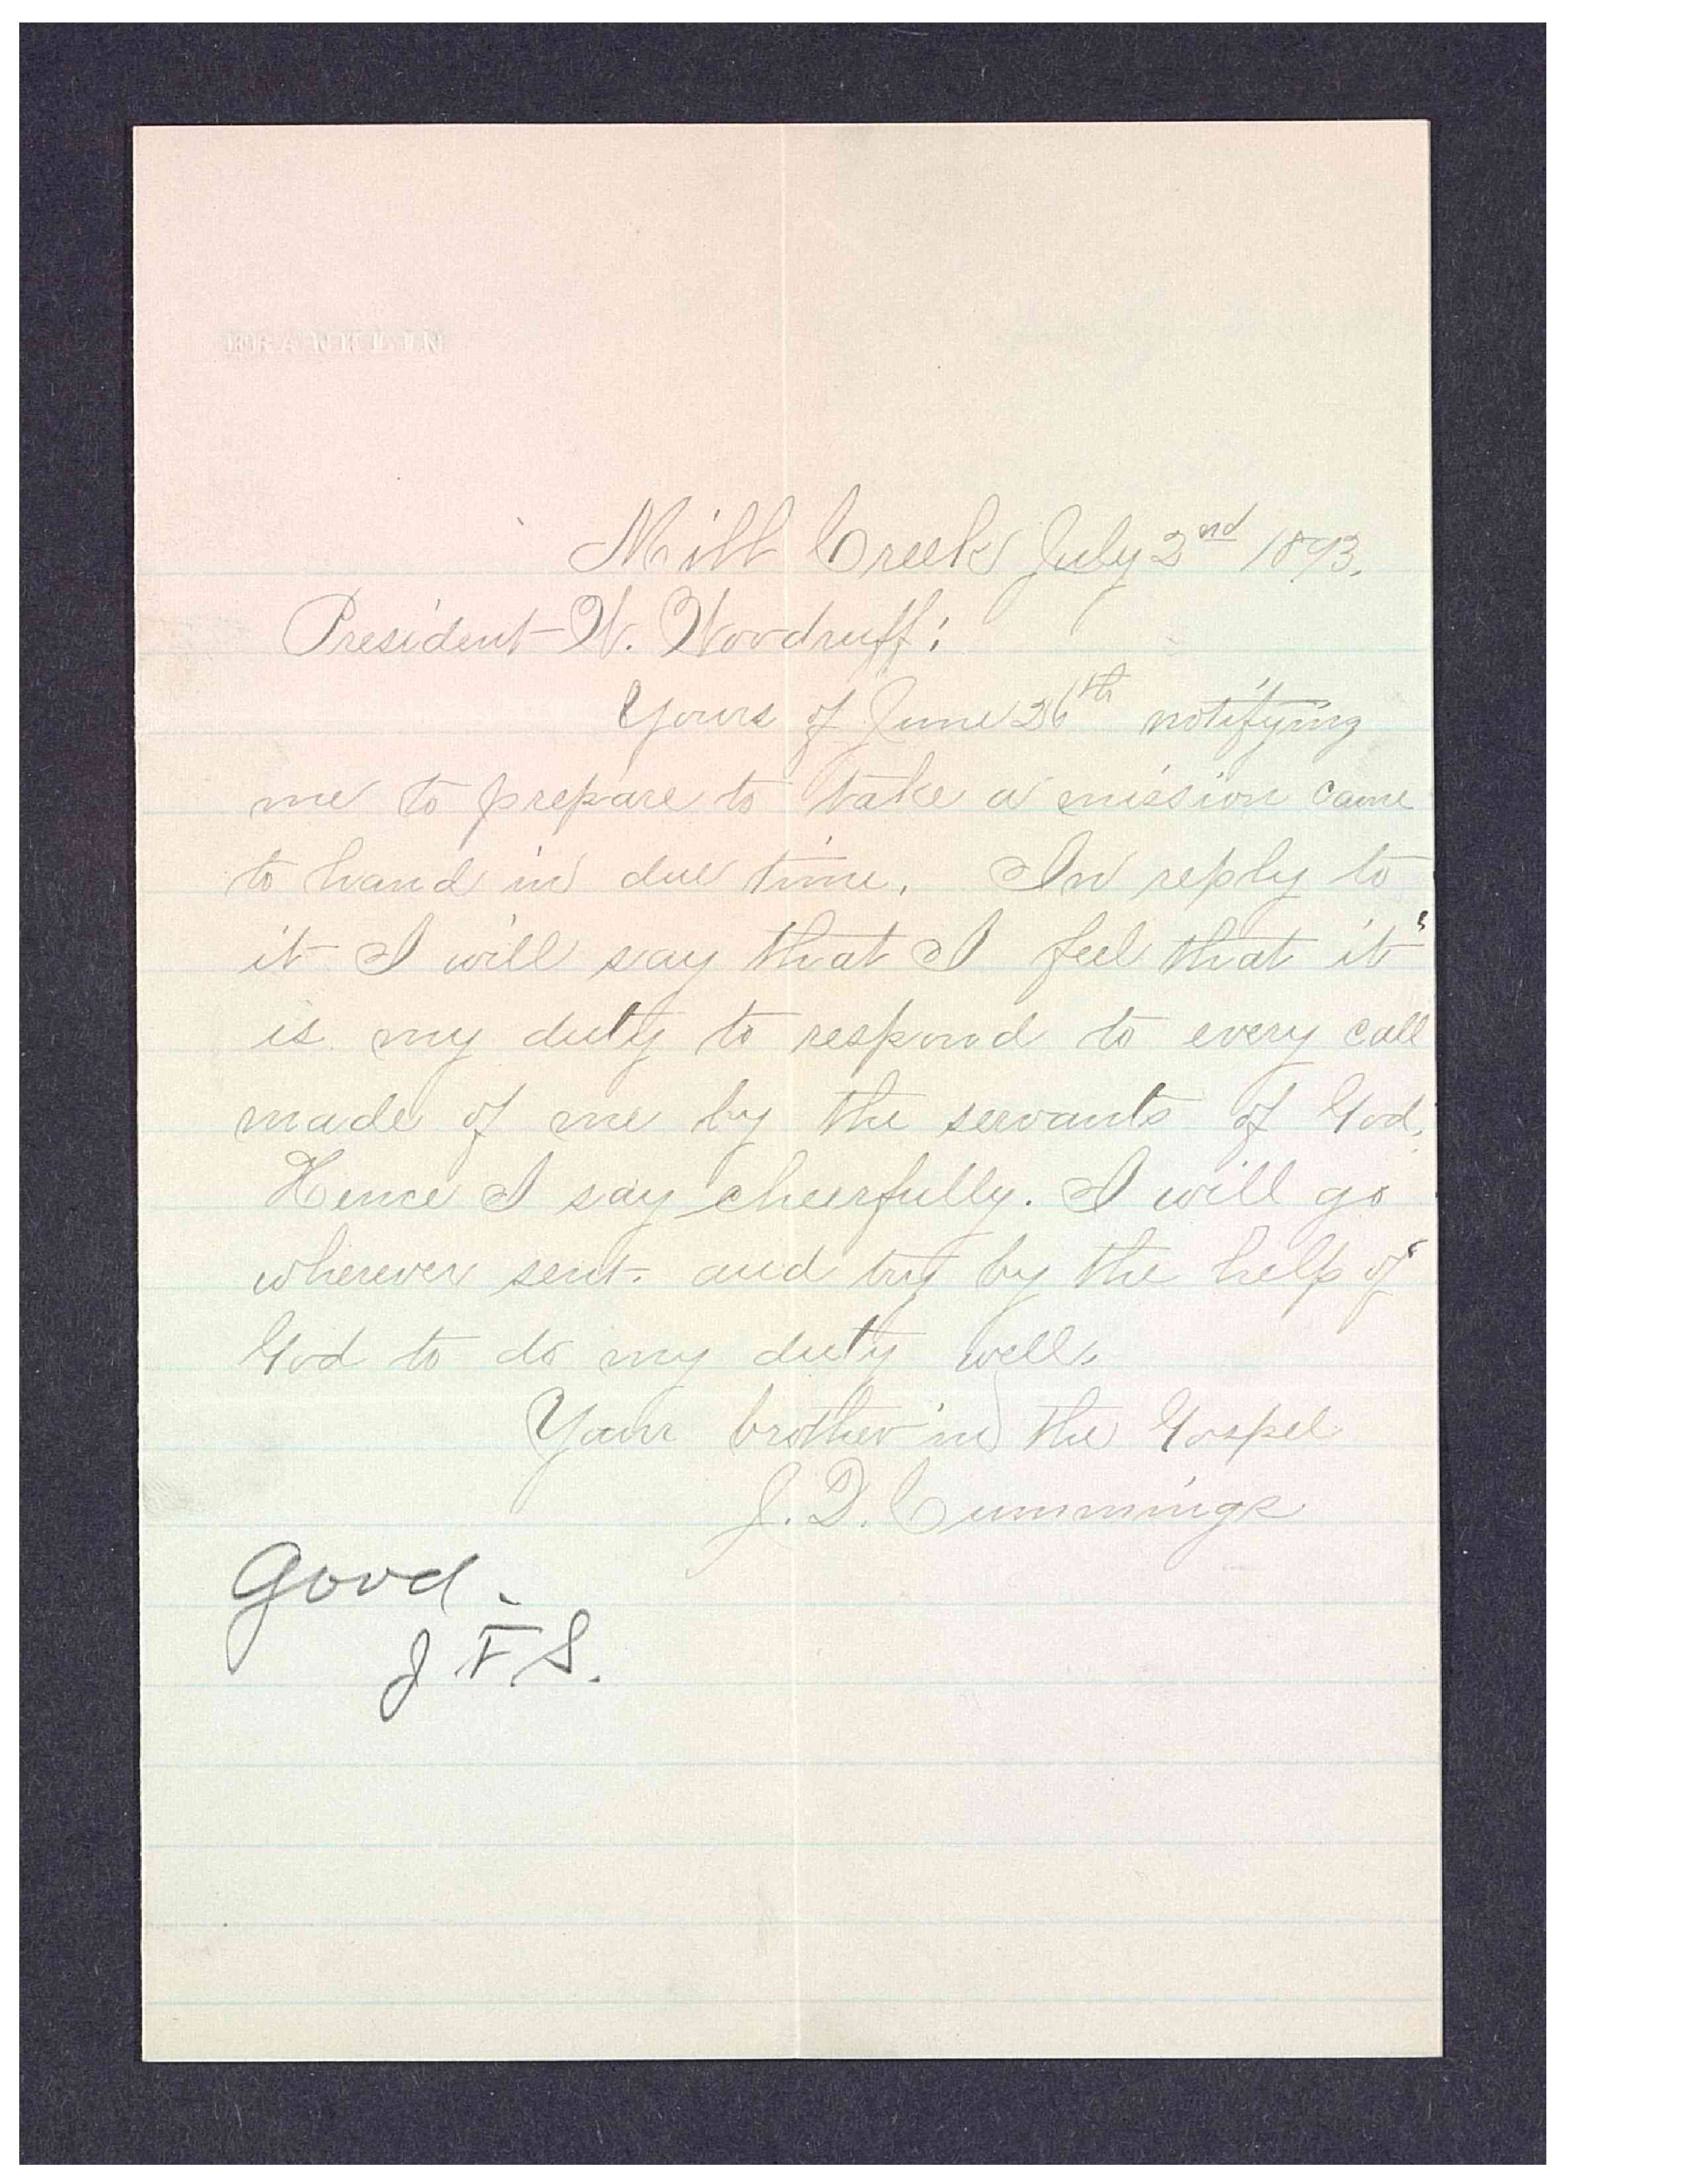 FRANKLIN
Mill Creek July 2nd 1893.
President W. Woodruff:
Yours of June 26th notifying
me to prepare to take a mission came
to hand in due time. In reply to
it I will say that I feel that it
is my duty to respond to every call
made of me by the servants of God.
Hence I say cheerfully. I will go
wherever sent. and try by the help of
God to do my duty well.
Your brother in the Gospel
J. D. Cummings
Good.
J F. S.